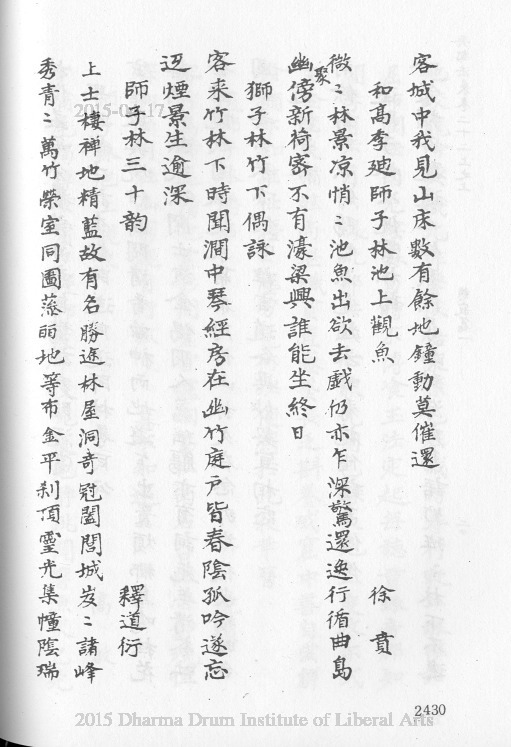 客城中我見山床數有餘地鐘動莫催還
和高季廸師子林池上觀魚 徐賁
微〻林景凉悄〻池魚出欲去戲仍亦乍深驚還逸行循曲島
幽傍新荷聚密不有濠梁興誰能坐終日
獅子林竹下偶詠
客来竹林下時聞澗中琴經房在幽竹庭戶皆春陰孤吟遂忘
返煙景生逾深
師子林三十韵 釋道衍
上士棲禅地精藍故有名勝連林屋洞奇冠闔閭城岌〻諸峰
秀青〻萬竹榮室同圖蓭丽地等布金平刹頂靈光集幢陰瑞
2015-04-17
2430
2015 Dharma Drum Institute of Liberal Arts